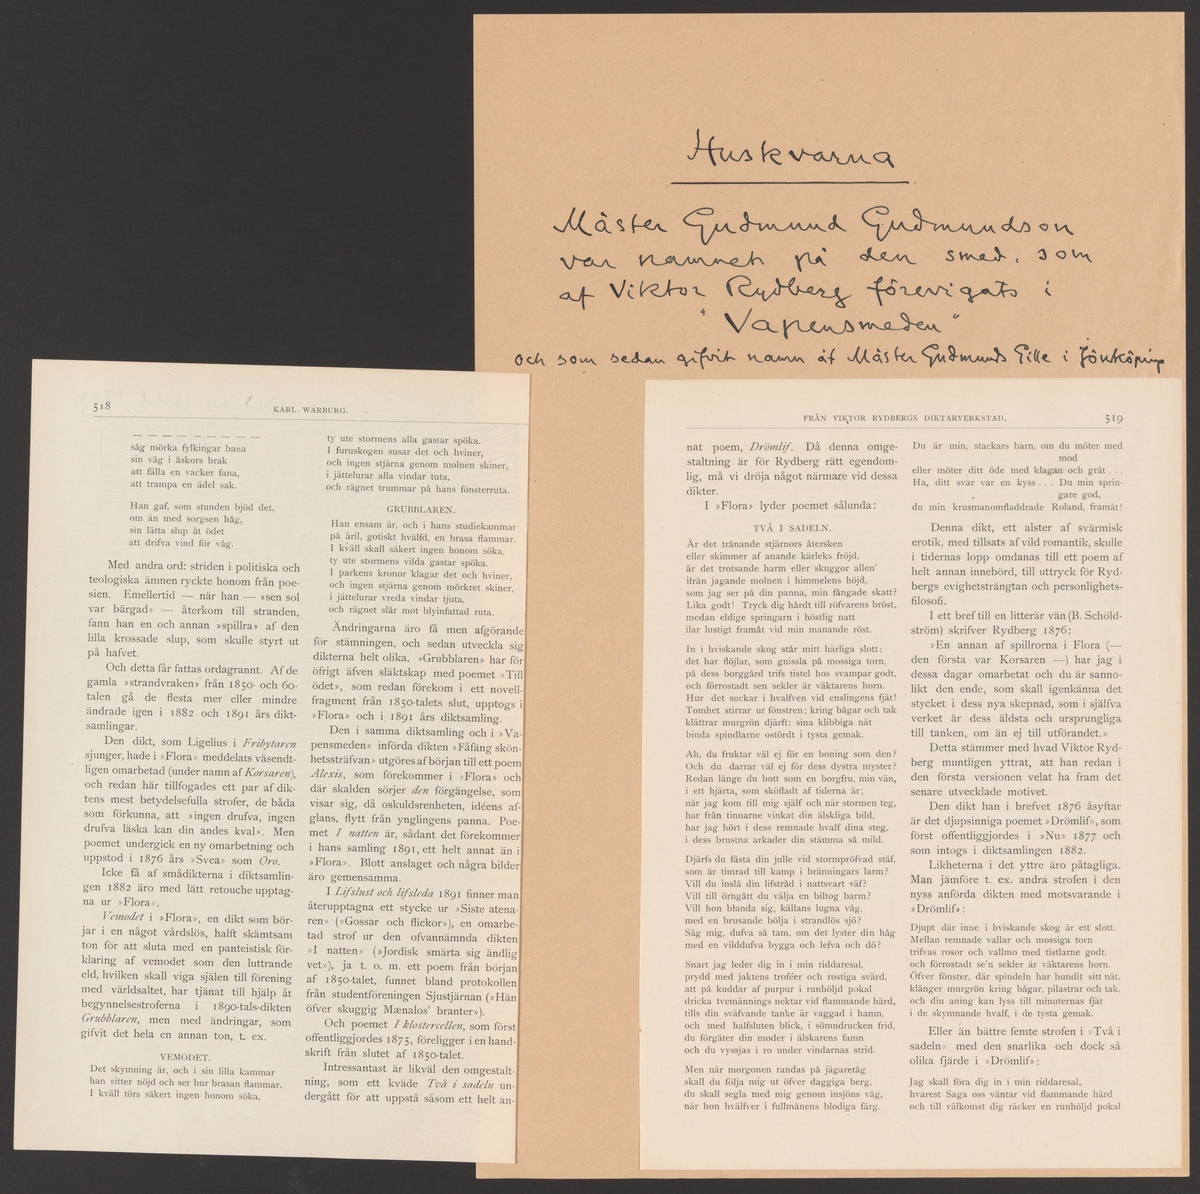 Huskvarna
Mäster Gudmund Gudmundson
var namnet på den smed, som
af Viktor Rydberg förevigats i
"Vapensmeden"
och som sedan gifvit namn åt Mäster Gudmunds Gille i Jönköping
518
KARL WARBURG.
— — — — — — — — — —
såg mörka fylkingar bana
sin väg i åskors brak
att fälla en vacker fana,
att trampa en ädel sak.
Han gaf, som stunden bjöd det,
om än med sorgsen håg,
sin lätta slup åt ödet
att drifva vind för våg.
Med andra ord: striden i politiska och
teologiska ämnen ryckte honom från poe-
sien. Emellertid — när han — »sen sol
var bärgad» — återkom till stranden,
fann han en och annan »spillra» af den
lilla krossade slup, som skulle styrt ut
på hafvet.
Och detta får fattas ordagrannt. Af de
gamla »strandvraken» från 1850- och 60-
talen gå de flesta mer eller mindre
ändrade igen i 1882 och 1891 års dikt-
samlingar.
Den dikt, som Ligelius i Fribytaren
sjunger, hade i »Flora» meddelats väsendt-
ligen omarbetad (under namn af Korsaren),
och redan här tillfogades ett par af dik-
tens mest betydelsefulla strofer, de båda
som förkunna, att »ingen drufva, ingen
drufva läska kan din andes kval». Men
poemet undergick en ny omarbetning och
uppstod i 1876 års »Svea» som Oro.
Icke få af smådikterna i diktsamlin-
gen 1882 äro med lätt retouche upptag-
na ur »Flora».
Vemodet i »Flora», en dikt som bör-
jar i en något vårdslös, halft skämtsam
ton för att sluta med en panteistisk för-
klaring af vemodet som den luttrande
eld, hvilken skall viga själen till förening
med världsaltet, har tjänat till hjälp åt
begynnelsestroferna i 1890-tals-dikten
Grubblaren, men med ändringar, som
gifvit det hela en annan ton, t. ex.
VEMODET.
Det skymning är, och i sin lilla kammar
han sitter nöjd och ser hur brasan flammar.
I kväll törs säkert ingen honom söka,
ty ute stormens alla gastar spöka.
I furuskogen susar det och hviner,
och ingen stjärna genom molnen skiner,
i jättelurar alla vindar tuta,
och rägnet trummar på hans fönsterruta.
GRUBBLAREN.
Han ensam är, och i hans studiekammar
på äril, gotiskt hvälfd, en brasa flammar.
I kväll skall säkert ingen honom söka,
ty ute stormens vilda gastar spöka.
I parkens kronor klagar det och hviner,
och ingen stjärna genom mörkret skiner,
i jättelurar vreda vindar tjuta,
och rägnet slår mot blyinfattad ruta.
Ändringarna äro få men afgörande
för stämningen, och sedan utveckla sig
dikterna helt olika. »Grubblaren» har för
öfrigt äfven släktskap med poemet »Till
ödet», som redan förekom i ett novell-
fragment från 1850-talets slut, upptogs i
»Flora» och i 1891 års diktsamling.
Den i samma diktsamling och i »Va-
pensmeden» införda dikten »Fåfäng skön-
hetssträfvan» utgöres af början till ett poem
Alexis, som förekommer i »Flora» och
där skalden sörjer den förgängelse, som
visar sig, då oskuldsrenheten, idéens af-
glans, flytt från ynglingens panna. Poe-
met I natten är, sådant det förekommer
i hans samling 1891, ett helt annat än i
»Flora». Blott anslaget och några bilder
äro gemensamma.
I Lifslust och lifsleda 1891 finner man
återupptagna ett stycke ur »Siste atena-
ren» (»Gossar och flickor»), en omarbe-
tad strof ur den ofvannämnda dikten
»I natten» (»Jordisk smärta sig ändlig
vet»), ja t. o. m. ett poem från början
af 1850-talet, funnet bland protokollen
från studentföreningen Sjustjärnan (»Hän
öfver skuggig Mænalos' branter»).
Och poemet I klostercellen, som först
offentliggjordes 1875, föreligger i en hand-
skrift från slutet af 1850-talet.
Intressantast är likväl den omgestalt-
ning, som ett kväde Två i sadeln un-
dergått för att uppstå såsom ett helt an-
FRÅN VIKTOR RYDBERGS DIKTARVERKSTAD.
519
nat poem, Drömlif. Då denna omge-
staltning är för Rydberg rätt egendom-
lig, må vi dröja något närmare vid dessa
dikter.
I »Flora» lyder poemet sålunda:
TVÅ I SADELN.
Är det trånande stjärnors återsken
eller skimmer af anande kärleks fröjd,
är det trotsande harm eller skuggor allen'
ifrån jagande molnen i himmelens höjd,
som jag ser på din panna, min fångade skatt?
Lika godt! Tryck dig hårdt till röfvarens bröst,
medan eldige springarn i höstlig natt
ilar lustigt framåt vid min manande röst.
In i hviskande skog står mitt härliga slott:
det har flöjlar, som gnissla på mossiga torn,
på dess borggård trifs tistel hos svampar godt,
och förrostadt sen sekler är väktarens horn.
Hur det suckar i hvalfven vid enslingens fjät!
Tomhet stirrar ur fönstren; kring bågar och tak
klättrar murgrön djärft: sina klibbiga nät
binda spindlarne ostördt i tysta gemak.
Ah, du fruktar väl ej för en boning som den?
Och du darrar väl ej för dess dystra myster?
Redan länge du bott som en borgfru, min vän,
i ett hjärta, som sköfladt af tiderna är;
när jag kom till mig själf och när stormen teg,
har från tinnarne vinkat din älskliga bild,
har jag hört i dess remnade hvalf dina steg,
i dess brustna arkader din stämma så mild.
Djärfs du fästa din julle vid stormpröfvad stäf,
som är timrad till kamp i bränningars larm?
Vill du inslå din lifstråd i nattsvart väf?
Vill till örngått du välja en biltog barm?
Vill hon blanda sig, källans lugna våg,
med en brusande bölja i strandlös sjö?
Säg mig, dufva så tam, om det lyster din håg
med en vilddufva bygga och lefva och dö?
Snart jag leder dig in i min riddaresal,
prydd med jaktens troféer och rostiga svärd,
att på kuddar af purpur i runhöljd pokal
dricka tvemännings nektar vid flammande härd,
tills din sväfvande tanke är vaggad i hamn,
och med halfsluten blick, i sömndrucken frid,
du förgäter din moder i älskarens famn
och du vyssjas i ro under vindarnas strid.
Men när morgonen randas på jägaretåg
skall du följa mig ut öfver daggiga berg,
du skall segla med mig genom insjöns våg,
när hon hvälfver i fullmånens blodiga färg.
Du är min, stackars barn, om du möter med
mod
eller möter ditt öde med klagan och gråt . . .
Ha, ditt svar var en kyss . . . Du min sprin-
gare god,
du min krusmanomfladdrade Roland, framåt!
Denna dikt, ett alster af svärmisk
erotik, med tillsats af vild romantik, skulle
i tidernas lopp omdanas till ett poem af
helt annan innebörd, till uttryck för Ryd-
bergs evighetsträngtan och personlighets-
filosofi.
I ett bref till en litterär vän (B. Schöld-
ström) skrifver Rydberg 1876:
»En annan af spillrorna i Flora (—
den första var Korsaren —) har jag i
dessa dagar omarbetat och du är sanno-
likt den ende, som skall igenkänna det
stycket i dess nya skepnad, som i själfva
verket är dess äldsta och ursprungliga
till tanken, om än ej till utförandet.»
Detta stämmer med hvad Viktor Ryd-
berg muntligen yttrat, att han redan i
den första versionen velat ha fram det
senare utvecklade motivet.
Den dikt han i brefvet 1876 åsyftar
är det djupsinniga poemet »Drömlif», som
först offentliggjordes i »Nu» 1877 och
som intogs i diktsamlingen 1882.
Likheterna i det yttre äro påtagliga.
Man jämföre t. ex. andra strofen i den
nyss anförda dikten med motsvarande i
»Drömlif»:
Djupt där inne i hviskande skog är ett slott.
Mellan remnade vallar och mossiga torn
trifvas rosor och vallmo med tistlarne godt,
och förrostadt se'n sekler är väktarens horn.
Öfver fönster, där spindeln har bundit sitt nät,
klänger murgrön kring bågar, pilastrar och tak,
och din aning kan lyss till minuternas fjät
i de skymnande hvalf, i de tysta gemak.
Eller än bättre femte strofen i »Två i
sadeln» med den snarlika och dock så
olika fjärde i »Drömlif»:
Jag skall föra dig in i min riddaresal,
hvarest Saga oss väntar vid flammande härd
och till välkomst dig räcker en runhöljd pokal